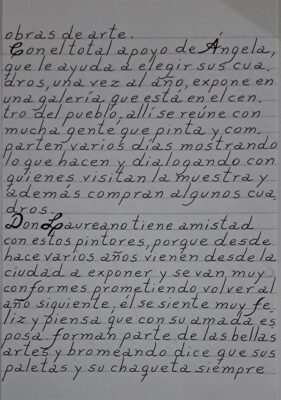 obras de arte.
Con el total apoyo de Ángela,
que le ayuda a elegir sus cua
dros, una vez al año, expone en
una galería que está en el cen.
tro del pueblo, allí se reúne con
mucha gente que pinta y com.
parten varios días mostrando
lo que hacen y dialogando con
quienes visitan la muestra y
además compran algunos cua.
dros.
Don Laureano tiene amistad
con estos pintores, porque desde
hace varios años vienen desde la
ciudad a exponer y se van muy
conformes prometiendo volver al
año siguiente. él se siente muy fe.
liz y piensa que con su amada es
posa forman parte de las bellas
artes y bromeando dice que sus
paletas y su chaqueta siempre